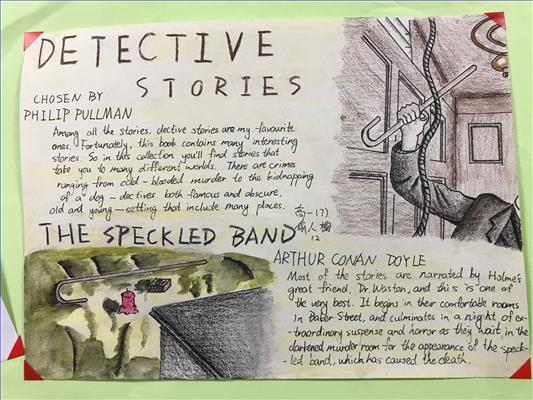 DETECTIVE
STORIES
CHOSEN BY
PHILIP PULLMAN
Among all the stories, dective stories are my favourite
ones. Fortunately, this book contains many interesting
stories. So in this collection you'll find stories that
take you to many different worlds. There are crimes
ranging from cold-blooded murder to the kidnapping
of a dog - dectives both famous and obscure,
old and young — setting that include many places.
高一(7)
12
THE SPECKLED BAND
ARTHUR CONAN DOYLE
Most of the stories are narrated by Holme's
great friend, Dr. Waston, and this is one of
the very best. It begins in their comfortable rooms
in Baber Street, and culminates in a night of ex-
-traordinary suspense and horror as they wait in the
darkened murder room for the appearance of the speck-
-led band, which has caused the death.